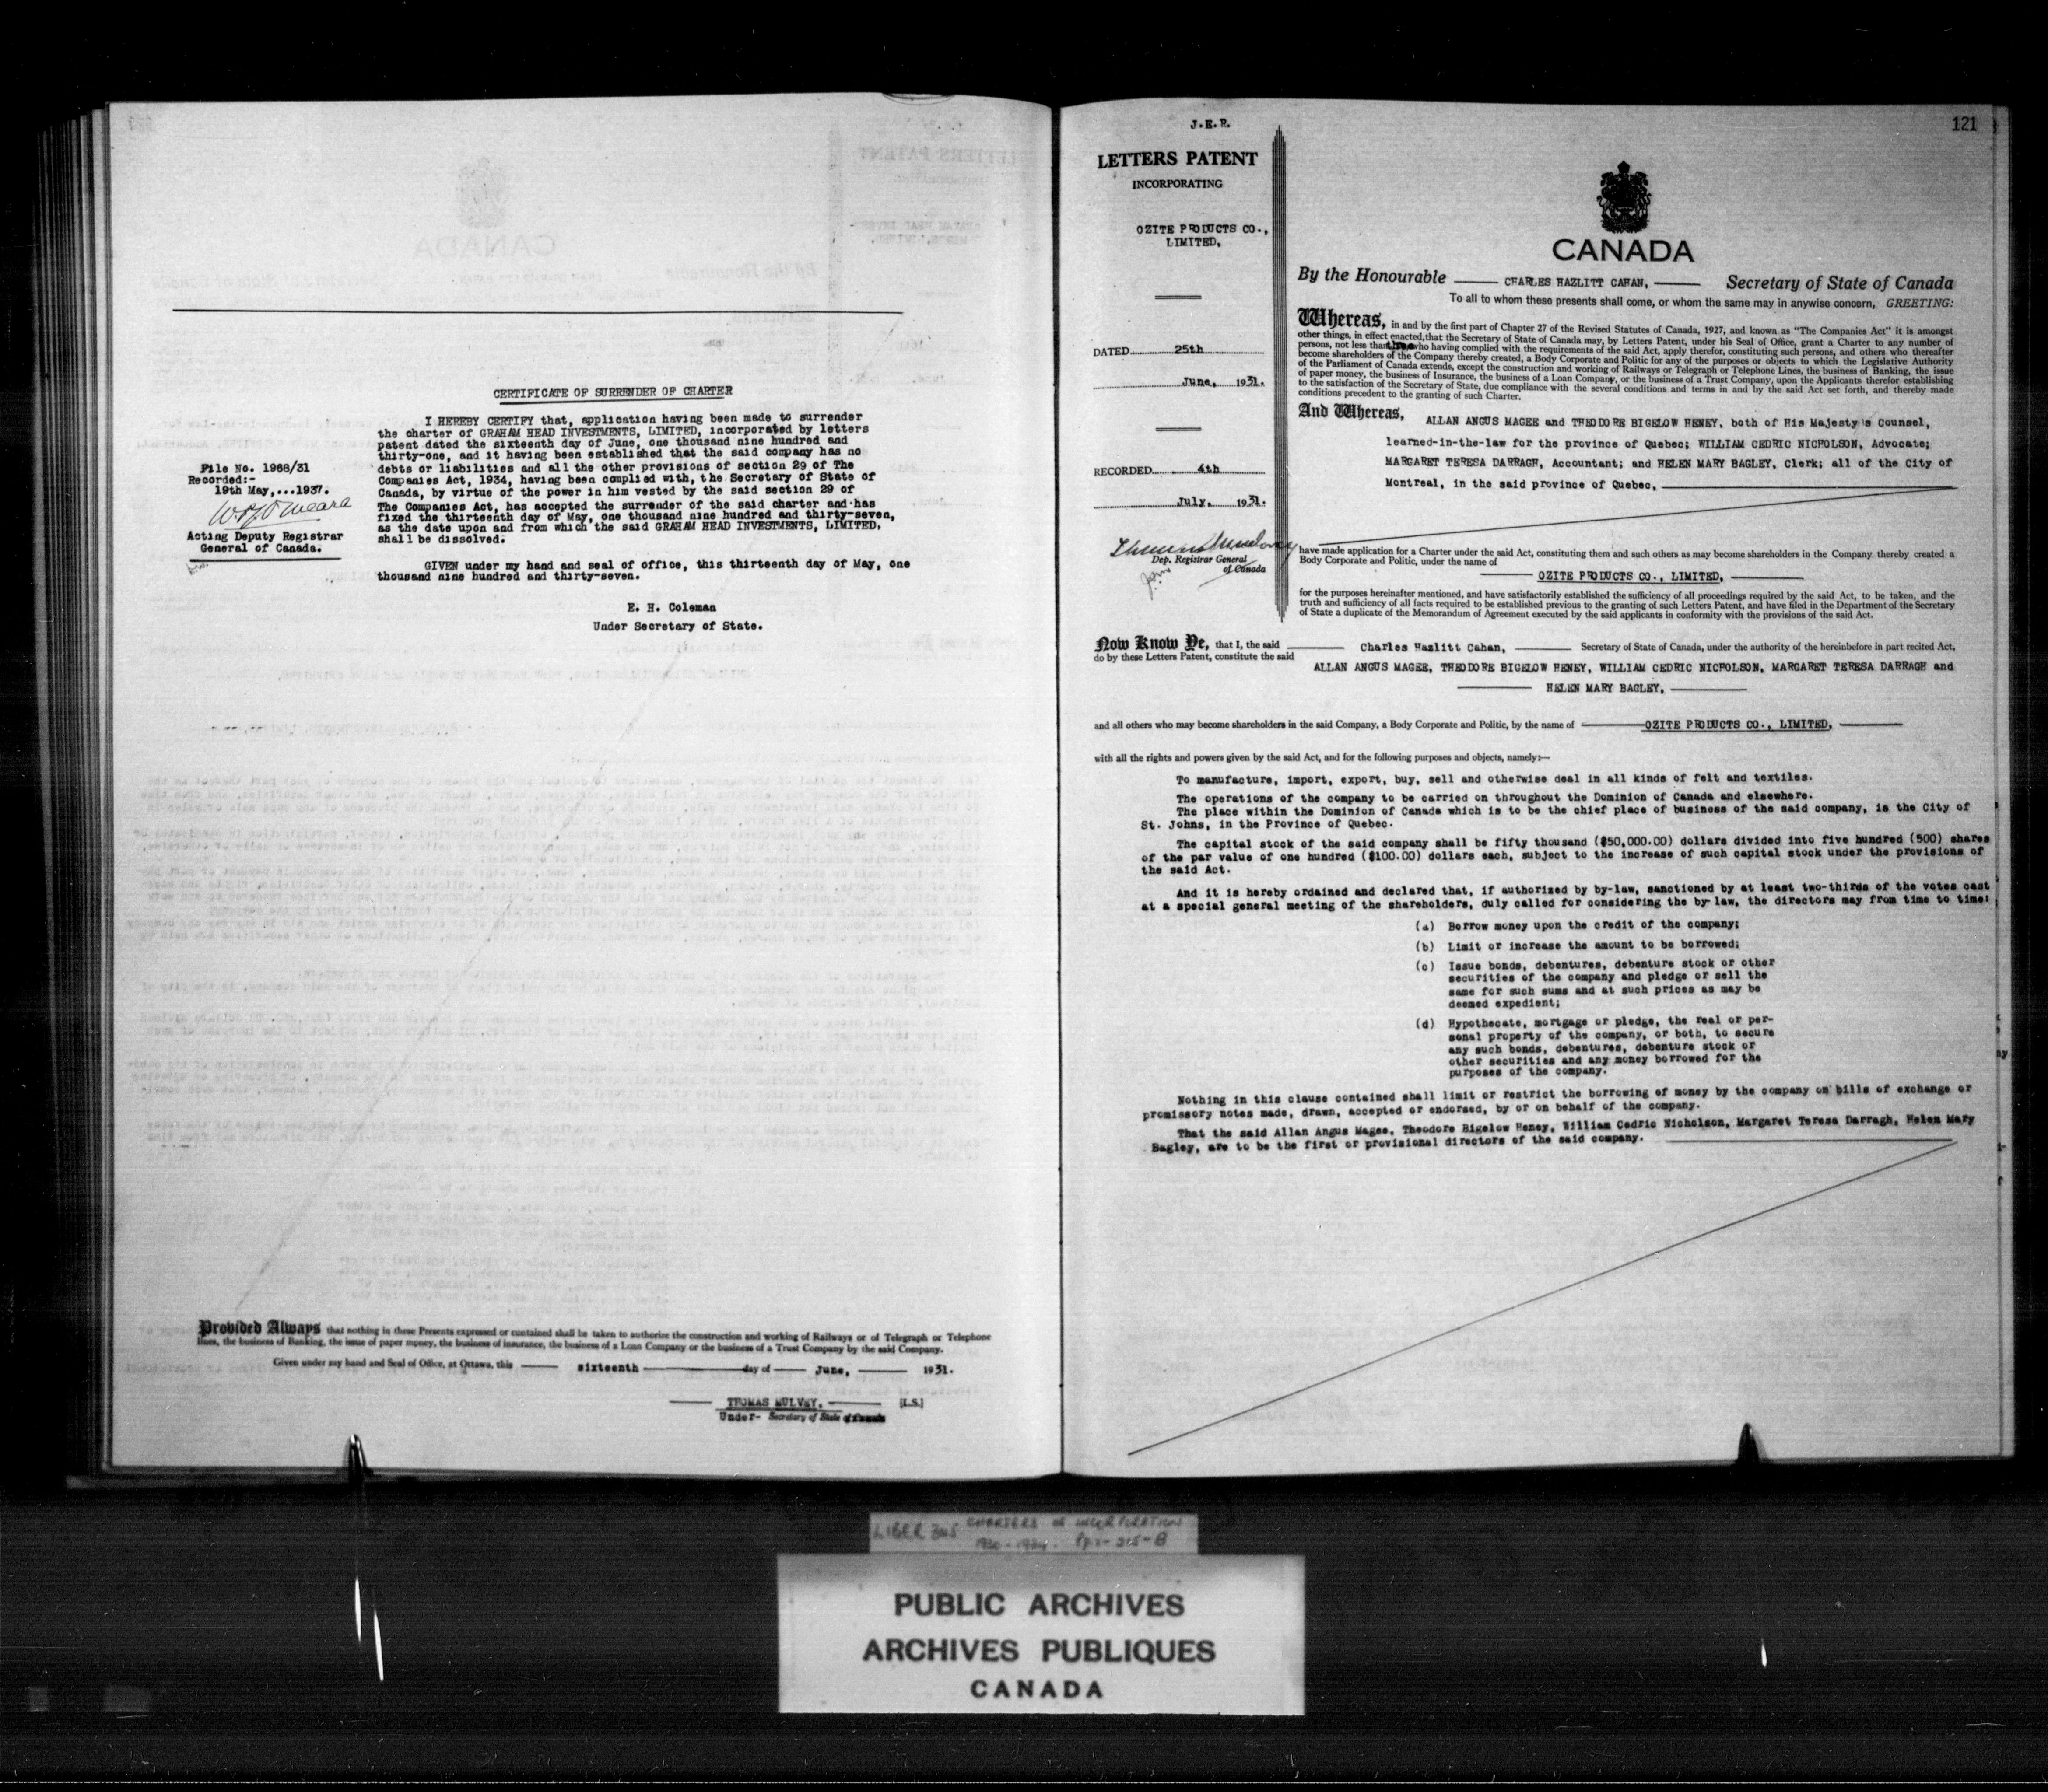 CERTIFICATE OF SURRENDER OF CHARTER
I HEREBY CERTIFY that, application having been made to surrender
the charter of GRAHAM HEAD INVESTMENTS, LIMITED, incorporated by letters
patent dated the sixteenth day of June, one thousand nine hundred and
thirty-one, and it having been established that the said company has no
debts or liabilities and all the other provisions of section 29 of The
Companies Act, 1934, having been complied with, the Secretary of State of
Canada, by virtue of the power in him vested by the said section 29 of
The Companies Act, has accepted the surrender of the said charter and has
fixed the thirteenth day of May, one thousand nine hundred and thirty-seven,
as the date upon and from which the said GRAHAM HEAD INVESTMENTS, LIMITED,
shall be dissolved.
GIVEN under my hand and seal of office, this thirteenth day of May, one
thousand nine hundred and thirty-seven.
E. H. Coleman
Under Secretary of State.
File No. 1968/31
Recorded:-
19th May,...1937.
Acting Deputy Registrar
General of Canada.
Provided Always that nothing in these Presents expressed or contained shall be taken to authorize the construction and working of Railways or of Telegraph or Telephone
lines, the business of Banking, the issue of paper money, the business of insurance, the business of a Loan Company or the business of a Trust Company by the said Company.
Given under my hand and Seal of Office, at Ottawa, this sixteenth day of June, 1931.
THOMAS MULVEY. [L.S.]
Under- Secretary of State
J.E.R.
121
LETTERS PATENT
INCORPORATING
OZITE PRODUCTS CO.,
LIMITED.
DATED 25th
June, 1931.
RECORDED 4th
July, 1931.
Dep. Registrar General
of Canada
CANADA
By the Honourable CHARLES HAZLITT CAHAN, Secretary of State of Canada
To all to whom these presents shall come, or whom the same may in anywise concern, GREETING:
Whereas, in and by the first part of Chapter 27 of the Revised Statutes of Canada, 1927, and known as "The Companies Act" it is amongst
other things, in effect enacted, that the Secretary of State of Canada may, by Letters Patent, under his Seal of Office, grant a Charter to any number of
persons, not less than three who having complied with the requirements of the said Act, apply therefor, constituting such persons, and others who thereafter
become shareholders of the Company thereby created, a Body Corporate and Politic for any of the purposes or objects to which the Legislative Authority
of the Parliament of Canada extends, except the construction and working of Railways or Telegraph or Telephone Lines, the business of Banking, the issue
of paper money, the business of Insurance, the business of a Loan Company, or the business of a Trust Company, upon the Applicants therefor establishing
to the satisfaction of the Secretary of State, due compliance with the several conditions and terms in and by the said Act set forth, and thereby made
conditions precedent to the granting of such Charter.
And Whereas, ALLAN ANGUS MAGEE and THEODORE BIGELOW HENEY, both of His Majesty's Counsel,
learned-in-the-law for the province of Quebec; WILLIAM CEDRIC NICHOLSON, Advocate;
MARGARET TERESA DARRAGH, Accountant; and HELEN MARY BAGLEY, Clerk; all of the City of
Montreal, in the said province of Quebec,
have made application for a Charter under the said Act, constituting them and such others as may become shareholders in the Company thereby created a
Body Corporate and Politic, under the name of
OZITE PRODUCTS CO., LIMITED,
for the purposes hereinafter mentioned, and have satisfactorily established the sufficiency of all proceedings required by the said Act, to be taken, and the
truth and sufficiency of all facts required to be established previous to the granting of such Letters Patent, and have filed in the Department of the Secretary
of State a duplicate of the Memorandum of Agreement executed by the said applicants in conformity with the provisions of the said Act.
Now Know Ye, that I, the said Charles Hazlitt Cahan, Secretary of State of Canada, under the authority of the hereinbefore in part recited Act,
do by these Letters Patent, constitute the said
ALLAN ANGUS MAGEE, THEODORE BIGELOW HENEY, WILLIAM CEDRIC NICHOLSON, MARGARET TERESA DARRAGH and
HELEN MARY BAGLEY,
and all others who may become shareholders in the said Company, a Body Corporate and Politic, by the name of OZITE PRODUCTS CO., LIMITED,
with all the rights and powers given by the said Act, and for the following purposes and objects, namely:—
To manufacture, import, export, buy, sell and otherwise deal in all kinds of felt and textiles.
The operations of the company to be carried on throughout the Dominion of Canada and elsewhere.
The place within the Dominion of Canada which is to be the chief place of business of the said company, is the City of
St. Johns, in the Province of Quebec.
The capital stock of the said company shall be fifty thousand ($50,000.00) dollars divided into five hundred (500) shares
of the par value of one hundred ($100.00) dollars each, subject to the increase of such capital stock under the provisions of
the said Act.
And it is hereby ordained and declared that, if authorized by by-law, sanctioned by at least two-thirds of the votes cast
at a special general meeting of the shareholders, duly called for considering the by-law, the directors may from time to time:
(a) Borrow money upon the credit of the company;
(b) Limit or increase the amount to be borrowed;
(c) Issue bonds, debentures, debenture stock or other
securities of the company and pledge or sell the
same for such sums and at such prices as may be
deemed expedient;
(d) Hypothecate, mortgage or pledge, the real or per-
sonal property of the company, or both, to secure
any such bonds, debentures, debenture stock or
other securities and any money borrowed for the
purposes of the company.
Nothing in this clause contained shall limit or restrict the borrowing of money by the company on bills of exchange or
promissory notes made, drawn, accepted or endorsed, by or on behalf of the company.
That the said Allan Angus Magee, Theodore Bigelow Heney, William Cedric Nicholson, Margaret Teresa Darragh, Helen Mary
Bagley, are to be the first or provisional directors of the said company.
LIBER 345 CHARTERS OF INCORPORATION
1930-1934. Pp. 1-215-B
PUBLIC ARCHIVES
ARCHIVES PUBLIQUES
CANADA